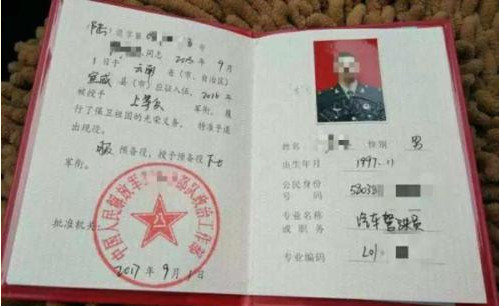 陆 退字第
号
同志 2015 年 9 月
1 日于 云南 省（市、自治区）
宣威 县（市）应征入伍，2016 年
被授予 上等兵 军衔，履
行了保卫祖国的光荣义务，特准予退
出现役。
服 预备役，授予预备役 下士
军衔。
批准机关：
中国人民解放军 部队政治工作部
八一
2017 年 9 月 1 日
姓名 性别 男
出生年月 1997.11
公民身份
号码
专业名称
或职务 汽车驾驶员
专业编码 201